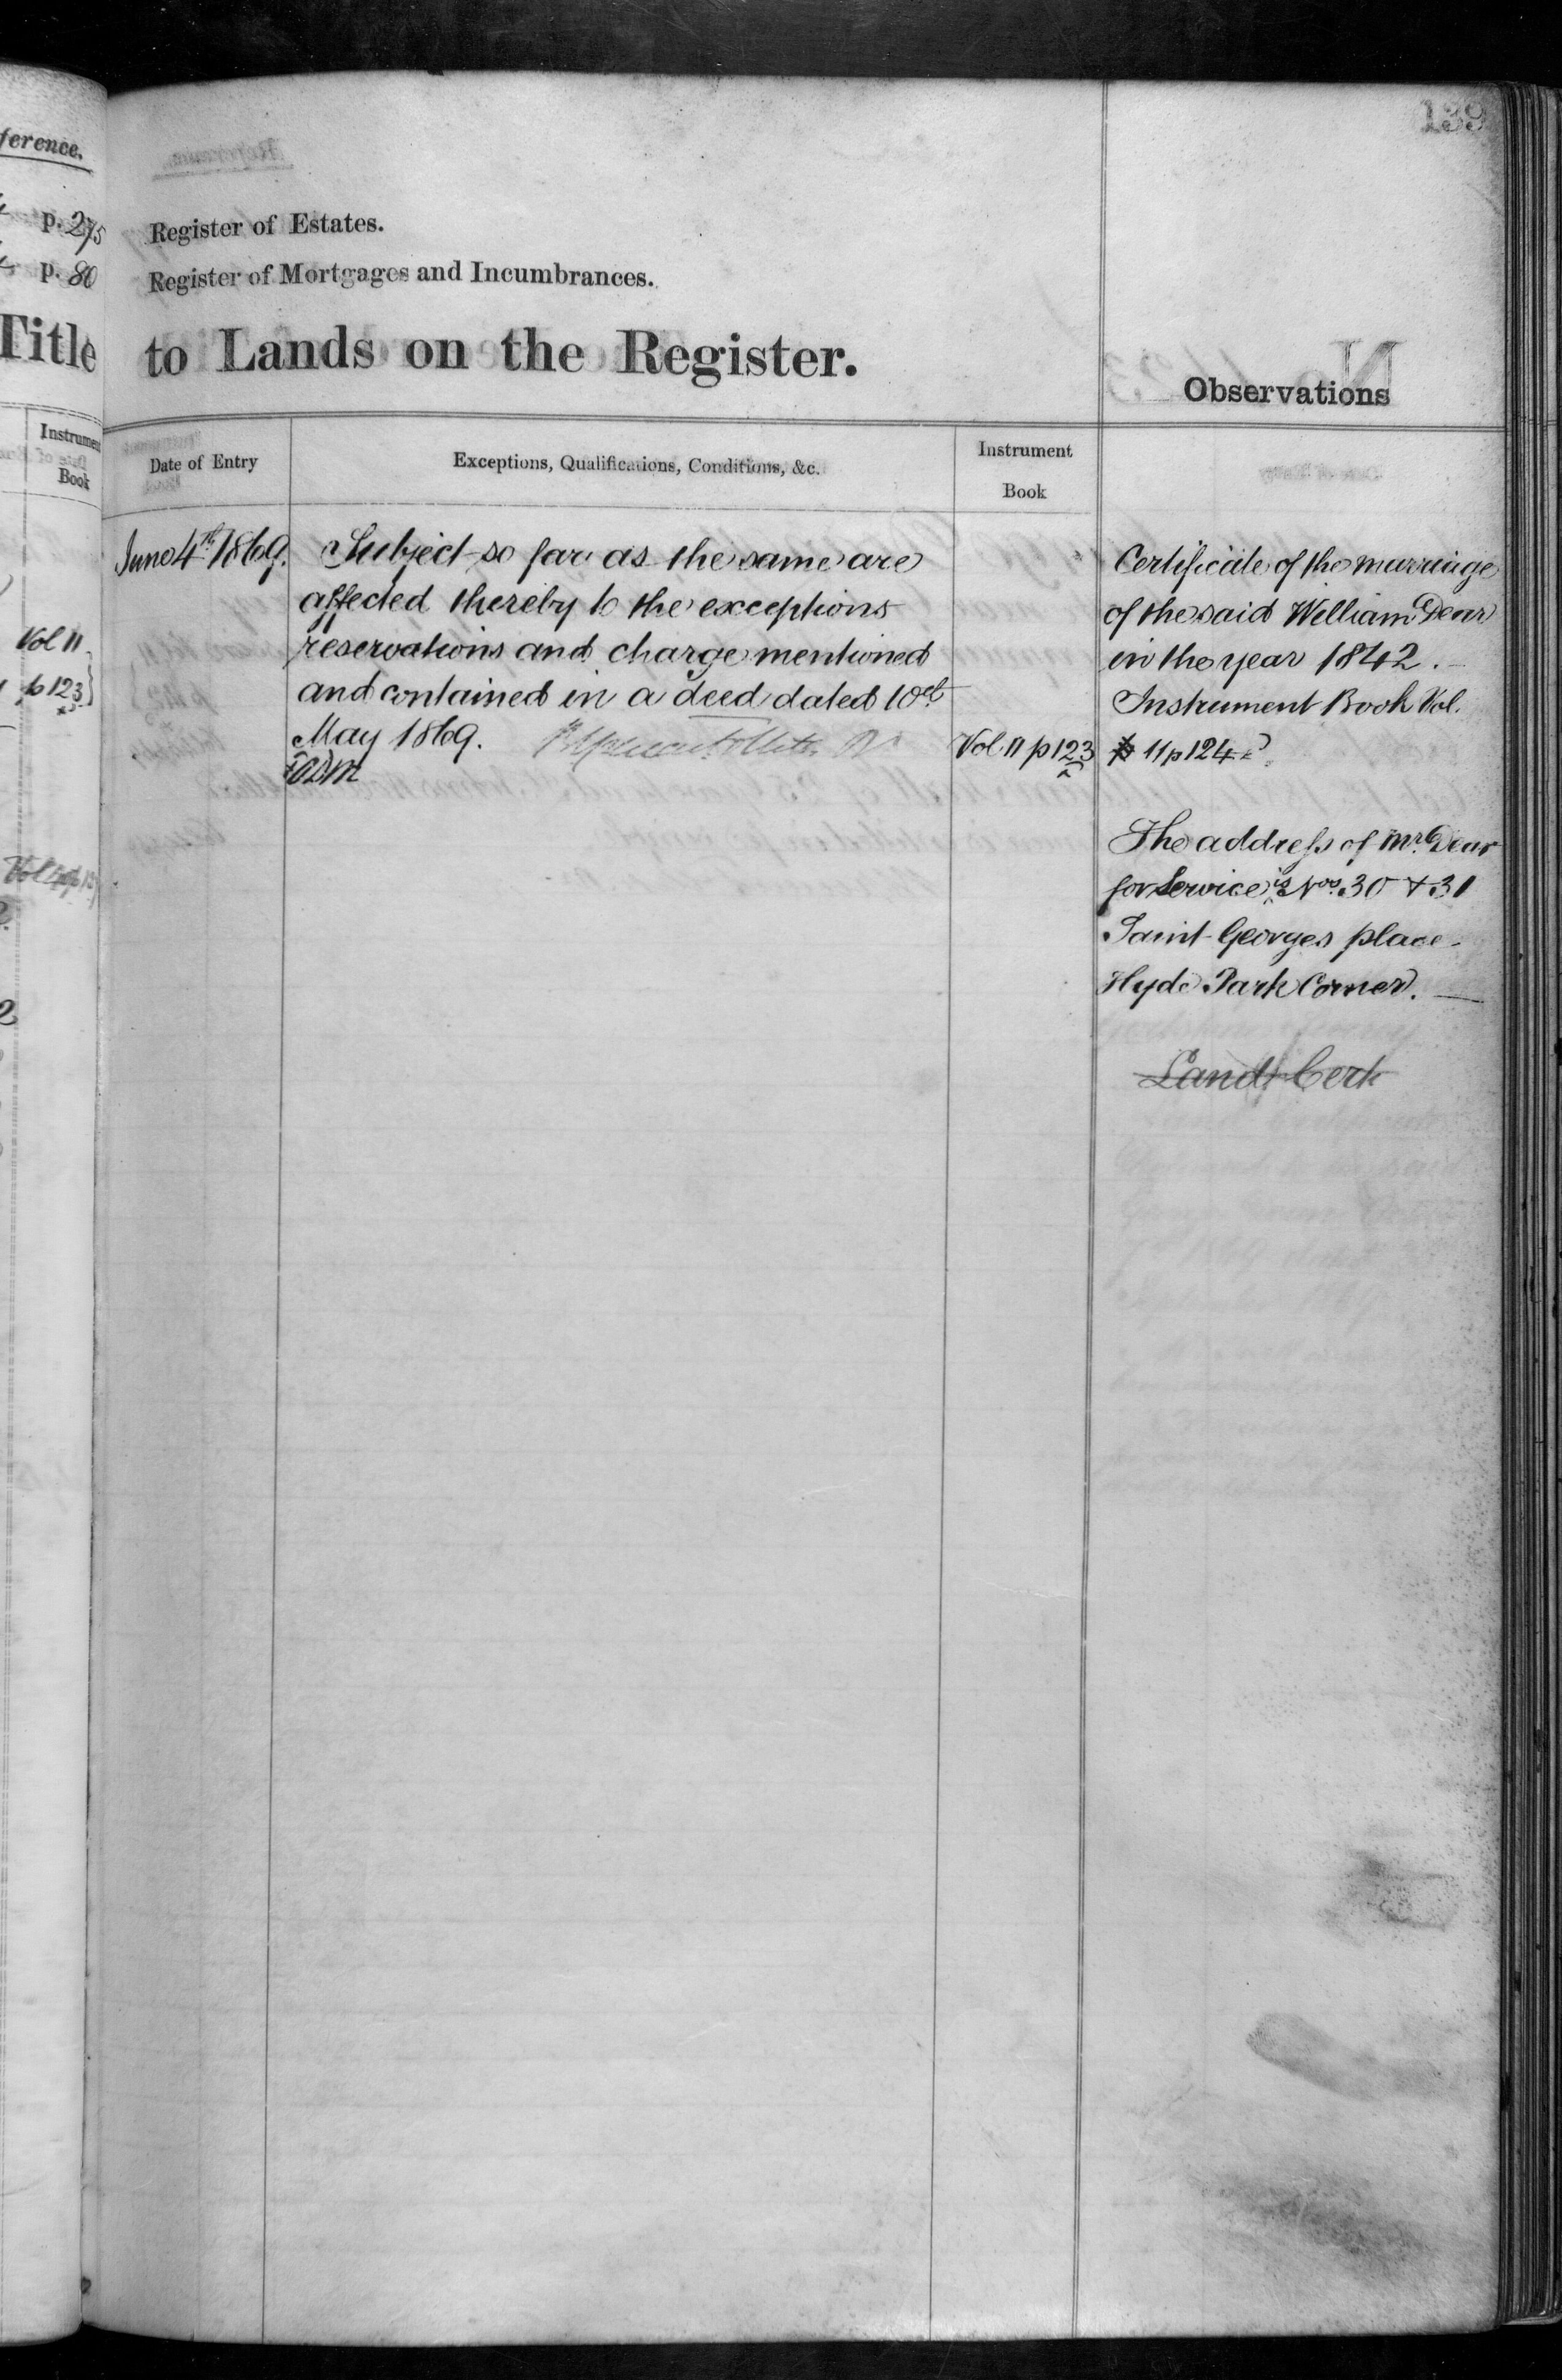 139
ference.
p. 275
p. 80
Title
Instrument
Book
Vol 11
p 123
Register of Estates.
Register of Mortgages and Incumbrances.
to Lands on the Register.
Observations
Date of Entry
Exceptions, Qualifications, Conditions, &c.
Instrument
Book
June 4th 1869.
Subject so far as the same are
affected thereby to the exceptions
reservations and charge mentioned
and contained in a deed dated 10th
May 1869.
Vol 11 p 123
Certificate of the marriage
of the said William Dear
in the year 1842.
Instrument Book Vol.
11 p 124
The address of Mr. Dear
for Service is Nos. 30 & 31
Saint Georges place
Hyde Park Corner.
Land Cert